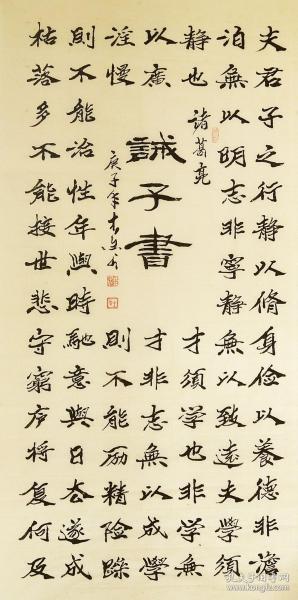 夫君子之行静以脩身俭以養德非澹
泊無以明志非寧静無以致遠夫學須
静也
才須学也非学無
以廣
才非志無以成學
淫慢
則不能励精险躁
則不能治性年與時馳意與日去遂成
枯落多不能接世悲守窮庐将复何及
諸葛亮
誡子書
庚子年